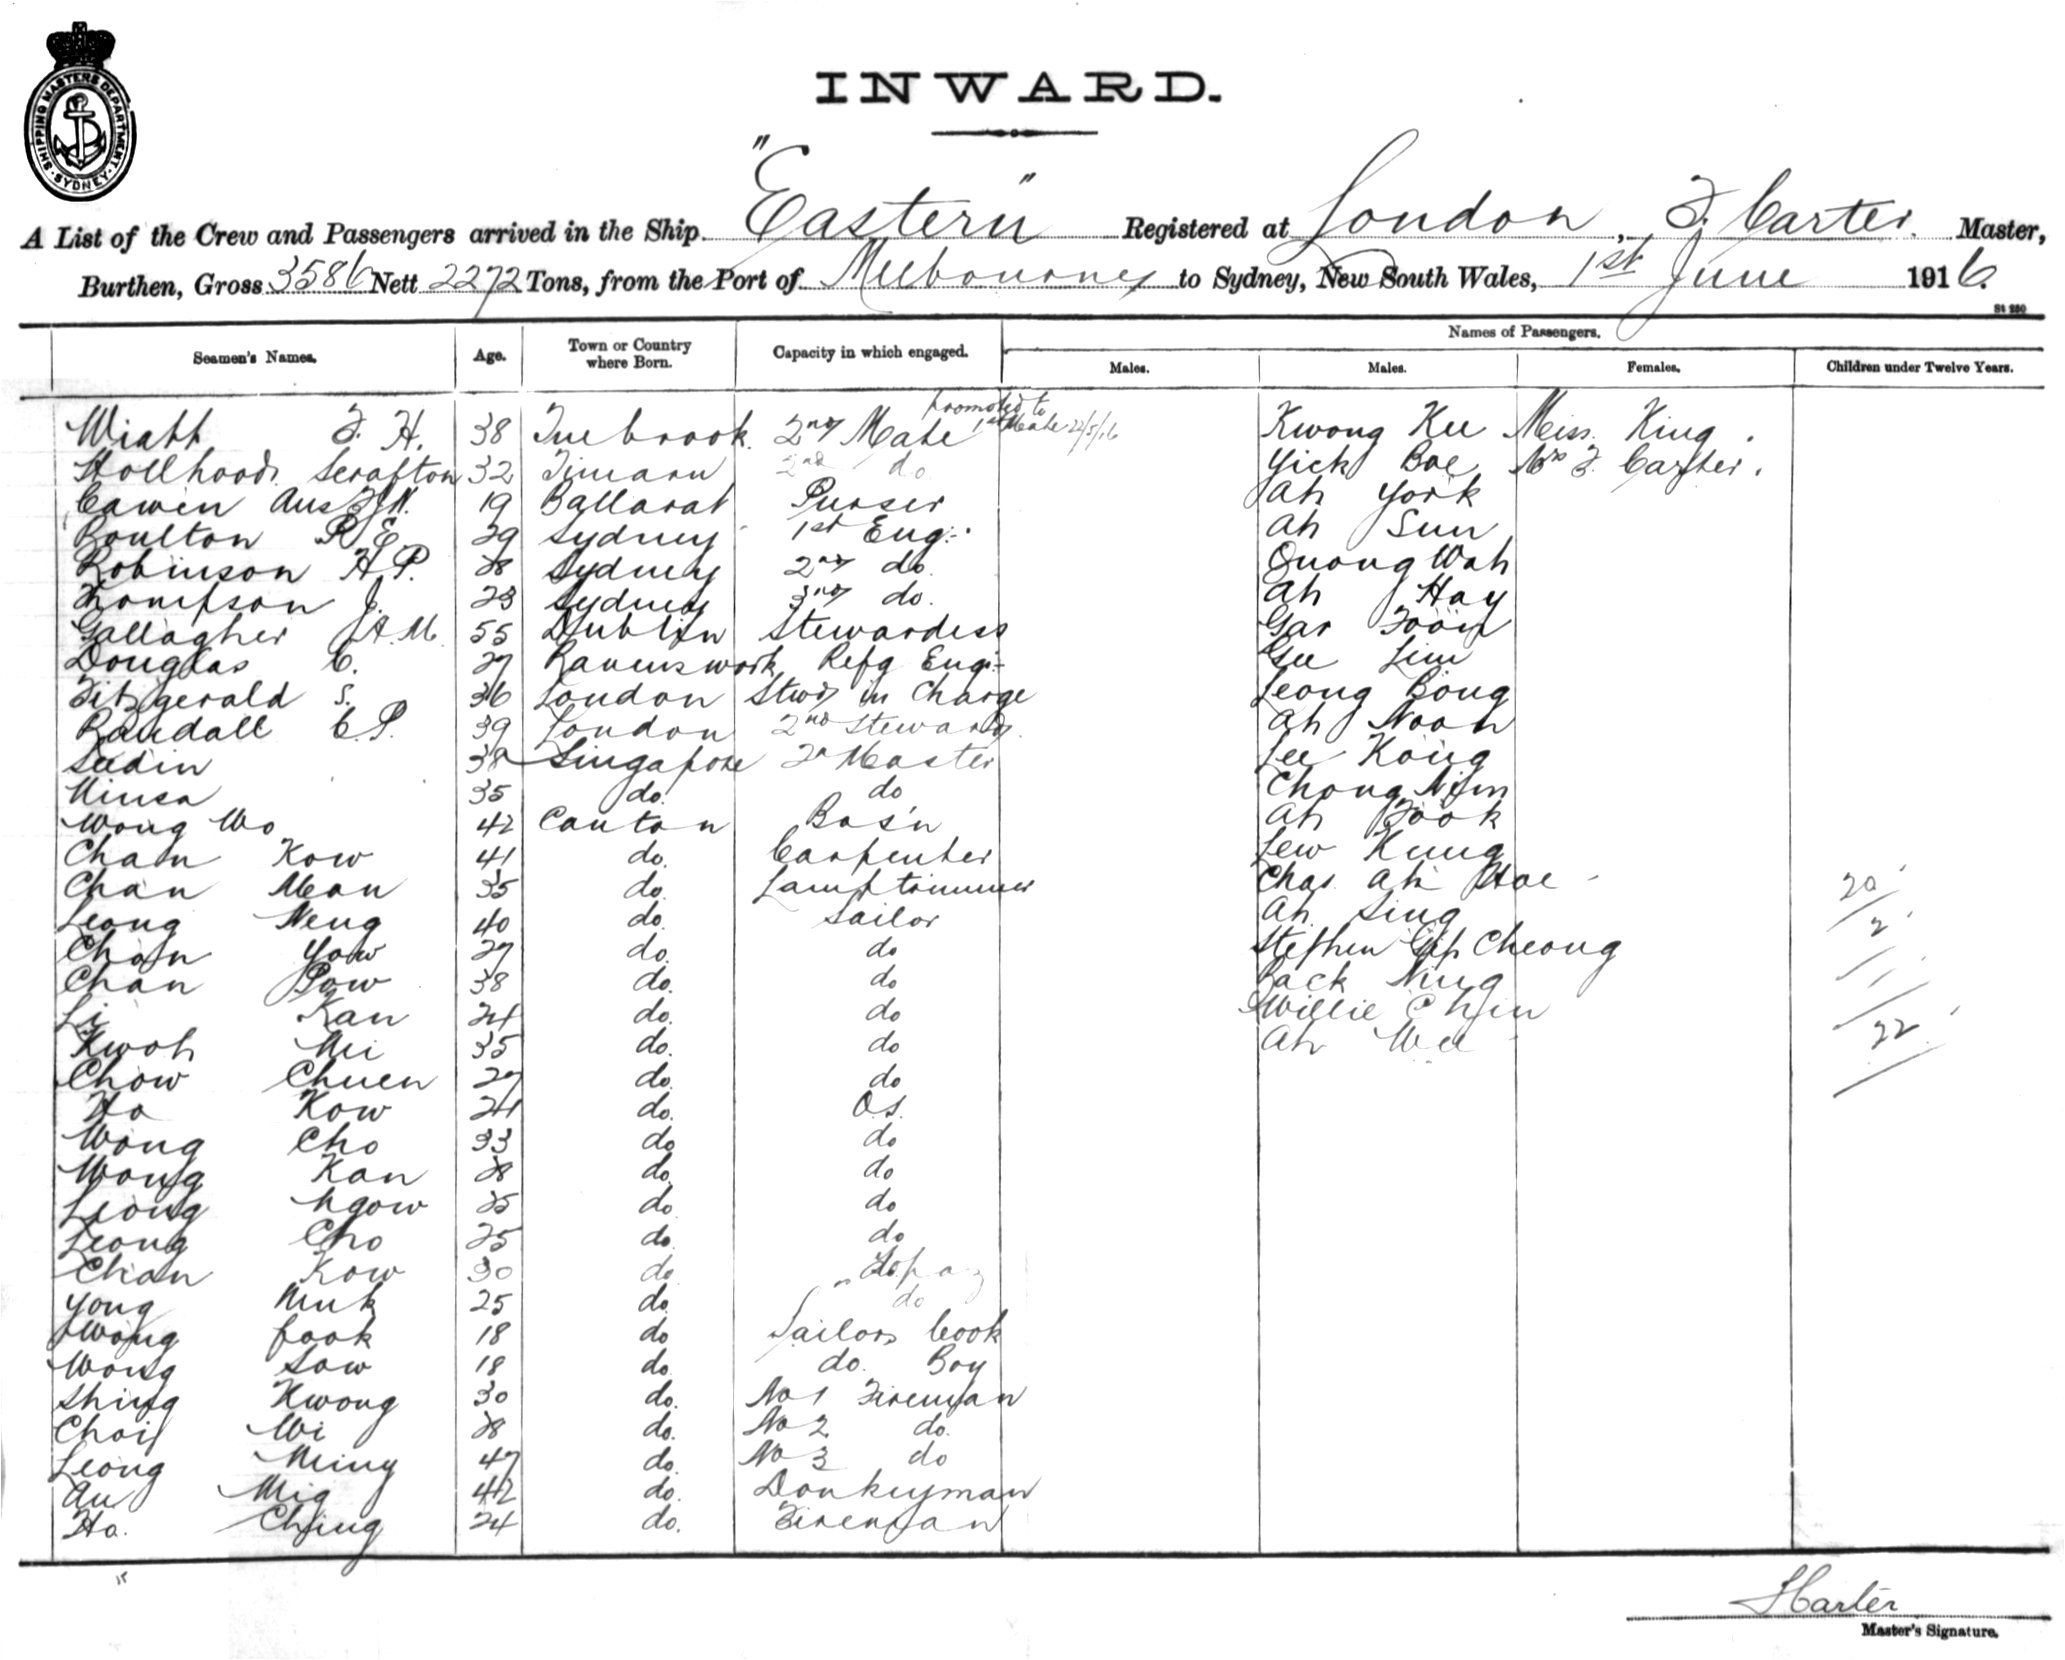 SHIPPING MASTERS DEPARTMENT SYDNEY
INWARD.
A List of the Crew and Passengers arrived in the Ship "Eastern" Registered at London, F. Carter. Master,
Burthen, Gross 3586 Nett 2272 Tons, from the Port of Melbourne to Sydney, New South Wales, 1st June 1916.
St 250
Seamen's Names. Age. Town or Country where Born. Capacity in which engaged. Names of Passengers.
Males. Males. Females. Children under Twelve Years.
promoted to
Wiatt F. H. 38 Tuebrook. 2nd Mate 1st Mate 22/5/16 Kwong Kee Miss King.
32 Timaru 2nd do Yick Mrs F. Carter.
19 Ballarat Purser Ah York
Boulton R E 29 Sydney 1st Eng. Ah Sun
Robinson H P. 28 Sydney 2nd do. Quong Wah
Thompson J. 23 Sydney 3rd do. Ah Hay
Gallagher J A. M. 55 Dublin Stewardess Gar Foon
Douglas C. 27 Refg Eng. Gee Lim
Fitzgerald S. 36 London Stwd in Charge Leong Bong
Randall C. P. 39 London 2nd Steward. Ah Noon
Sudin 38 Singapore Master Lee Kong
Minsa 35 do. do Chong Nim
Wong Wo 42 Canton Bos'n Ah Fook
Chan Kow 41 do. Carpenter Lew Kung
Chan Man 35 do. Lamptrimmer Chas. Ah Hoe 20
Leong Neng 40 do. Sailor Ah Sing 2
Chan Yow 27 do. do Stephen Cheong
Chan Pow 38 do. do Back Ning
Li Kan 24 do. do Willie Chin
Kwoh Mi 35 do. do Ah Wee 22
Chow Chuen 27 do. do
Ho Kow 24 do. O.S.
Wong Cho 33 do do
Wong Kan 28 do. do
Leong Ngow 25 do do
Leong Cho 25 do. do
Chan Kow 30 do
Yong Muk 25 do. do
Wong fook 18 do Sailors Cook
Wong Sow 18 do. do. Boy
Shing Kwong 30 do. No 1 Fireman
Choi Mi 28 do. No 2 do.
Leong Ming 47 do. No 3 do
Au Mig 42 do. Donkeyman
Ho. Ching 24 do. Fireman
F Carter
Master's Signature.